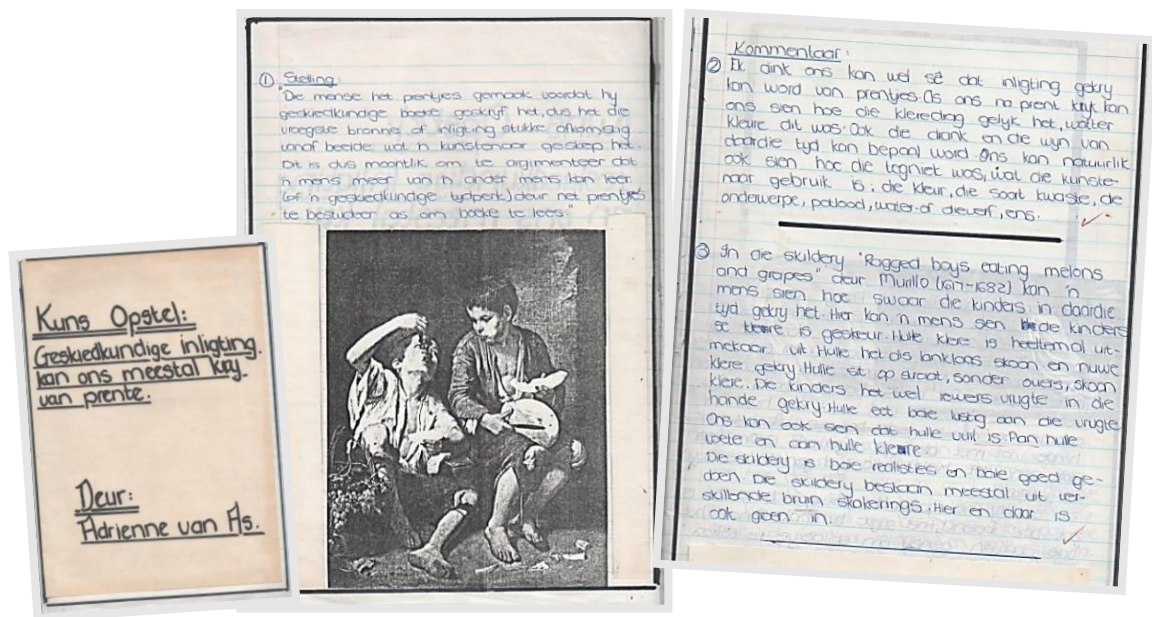 Kuns Opstel:
Geskiedkundige inligting.
kan ons meestal kry.
van prente.
Deur:
Adrienne van As.
① Stelling:
"Die mense het prentjies gemaak voordat hy
geskiedkundige boeke geskryf het, dus het die
vroegste bronne of inligting stukke afkomstig
vanaf beelde wat 'n kunstenaar geskep het.
Dit is dus moontlik om te argimenteer dat
'n mens meer van 'n ander mens kan leer
(of 'n geskiedkundige tydperk) deur net prentjies
te bestudeer as om boeke te lees."
Kommentaar:
② Ek dink ons kan wel sê dat inligting gekry
kan word van prentjies. As ons na prent kyk kan
ons sien hoe die kleredrag gelyk het, watter
kleure dit was. Ook die drank en die wyn van
daardie tyd kan bepaal word. Ons kan natuurlik
ook sien hoe die tegniet was, wat die kunste-
naar gebruik is; die kleur, die soort kwaste, die
onderwerpe, potlood, water-of olieverf, ens.
③ In die skildery "Ragged boys eating melons
and grapes" deur Murillo (1617-1682) kan 'n
mens sien hoe swaar die kinders in daardie
tyd gekry het. Hier kan 'n mens sien die kinders
se klere is geskeur. Hulle klere is heeltemal uit-
mekaar uit. Hulle het dis lanklaas skoon en nuwe
klere gekry. Hulle sit op straat, sonder ouers, skoon
klere. Die kinders het wel iewers vrugte in die
hande gekry. Hulle eet baie lustig aan die vrugte
Ons kan ook sien dat hulle vuil is. Aan hulle
voete en aan hulle klere
Die skildery is baie realisties en baie goed ge-
doen. Die skildery bestaan meestal uit ver-
skillende bruin skakerings. Hier en daar is
ook groen in.